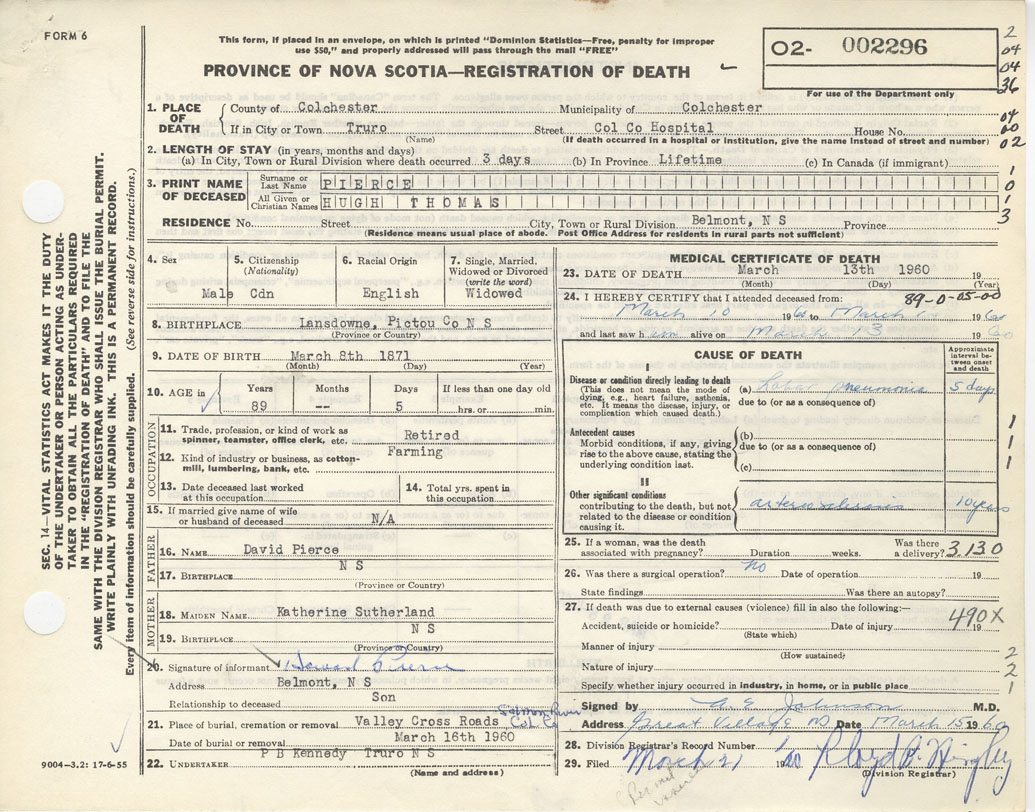 FORM 6
This form, if placed in an envelope, on which is printed "Dominion Statistics—Free, penalty for improper
use $50," and properly addressed will pass through the mail "FREE"
PROVINCE OF NOVA SCOTIA—REGISTRATION OF DEATH
O2- 002296
For use of the Department only
2
04
04
36
04
00
02
1
0
1
3
1. PLACE OF DEATH
County of Colchester Municipality of Colchester
If in City or Town Truro Street Col Co Hospital House No.
(Name) (If death occurred in a hospital or institution, give the name instead of street and number)
2. LENGTH OF STAY (in years, months and days)
(a) In City, Town or Rural Division where death occurred 3 days (b) In Province Lifetime (c) In Canada (if immigrant)
3. PRINT NAME OF DECEASED
Surname or Last Name PIERCE
All Given or Christian Names HUGH THOMAS
RESIDENCE No. Street City, Town or Rural Division Belmont, N S Province
(Residence means usual place of abode. Post Office Address for residents in rural parts not sufficient)
4. Sex Male
5. Citizenship (Nationality) Cdn
6. Racial Origin English
7. Single, Married, Widowed or Divorced (write the word) Widowed
8. BIRTHPLACE Lansdowne, Pictou Co N S
(Province or Country)
9. DATE OF BIRTH March 8th 1871
(Month) (Day) (Year)
10. AGE in Years 89 Months -- Days 5 If less than one day old hrs. or min.
OCCUPATION
11. Trade, profession, or kind of work as spinner, teamster, office clerk, etc. Retired
12. Kind of industry or business, as cotton-mill, lumbering, bank, etc. Farming
13. Date deceased last worked at this occupation
14. Total yrs. spent in this occupation
15. If married give name of wife or husband of deceased N/A
FATHER
16. NAME David Pierce
17. BIRTHPLACE N S
(Province or Country)
MOTHER
18. MAIDEN NAME Katherine Sutherland
19. BIRTHPLACE N S
(Province or Country)
20. Signature of informant Howard Pierce
Address Belmont, N S
Relationship to deceased Son
21. Place of burial, cremation or removal Valley Cross Roads Salmon River Col. Co.
Date of burial or removal March 16th 1960
22. UNDERTAKER P B Kennedy Truro N S
(Name and address)
MEDICAL CERTIFICATE OF DEATH
23. DATE OF DEATH March 13th 1960 19
(Month) (Day) (Year)
89-0-05-00
24. I HEREBY CERTIFY that I attended deceased from:
March 10 1960 to March 19 60
and last saw him alive on March 13 19 60
CAUSE OF DEATH
Approximate interval between onset and death
I
Disease or condition directly leading to death
(This does not mean the mode of dying, e.g., heart failure, asthenia, etc. It means the disease, injury, or complication which caused death.)
(a) Lobar pneumonia 5 days
due to (or as a consequence of)
Antecedent causes
Morbid conditions, if any, giving rise to the above cause, stating the underlying condition last.
(b)
due to (or as a consequence of)
(c)
1
1
1
II
Other significant conditions contributing to the death, but not related to the disease or condition causing it.
arteriosclerosis 10 years
25. If a woman, was the death associated with pregnancy? Duration weeks. Was there a delivery? 3.130
26. Was there a surgical operation? no Date of operation 19
State findings Was there an autopsy?
27. If death was due to external causes (violence) fill in also the following:—
Accident, suicide or homicide? Date of injury 19
490X
(State which)
Manner of injury
(How sustained)
Nature of injury
Specify whether injury occurred in industry, in home, or in public place
2
2
1
Signed by A. E. Johnson M.D.
Address Great Village NS Date March 15 1960
28. Division Registrar's Record Number
29. Filed March 21 1960
(Division Registrar)
SEC. 14—VITAL STATISTICS ACT MAKES IT THE DUTY
OF THE UNDERTAKER OR PERSON ACTING AS UNDER-
TAKER TO OBTAIN ALL THE PARTICULARS REQUIRED
IN THE "REGISTRATION OF DEATH" AND TO FILE THE
SAME WITH THE DIVISION REGISTRAR WHO SHALL ISSUE THE BURIAL PERMIT.
WRITE PLAINLY WITH UNFADING INK. THIS IS A PERMANENT RECORD.
Every item of information should be carefully supplied. (See reverse side for instructions.)
9004-3.2: 17-6-55